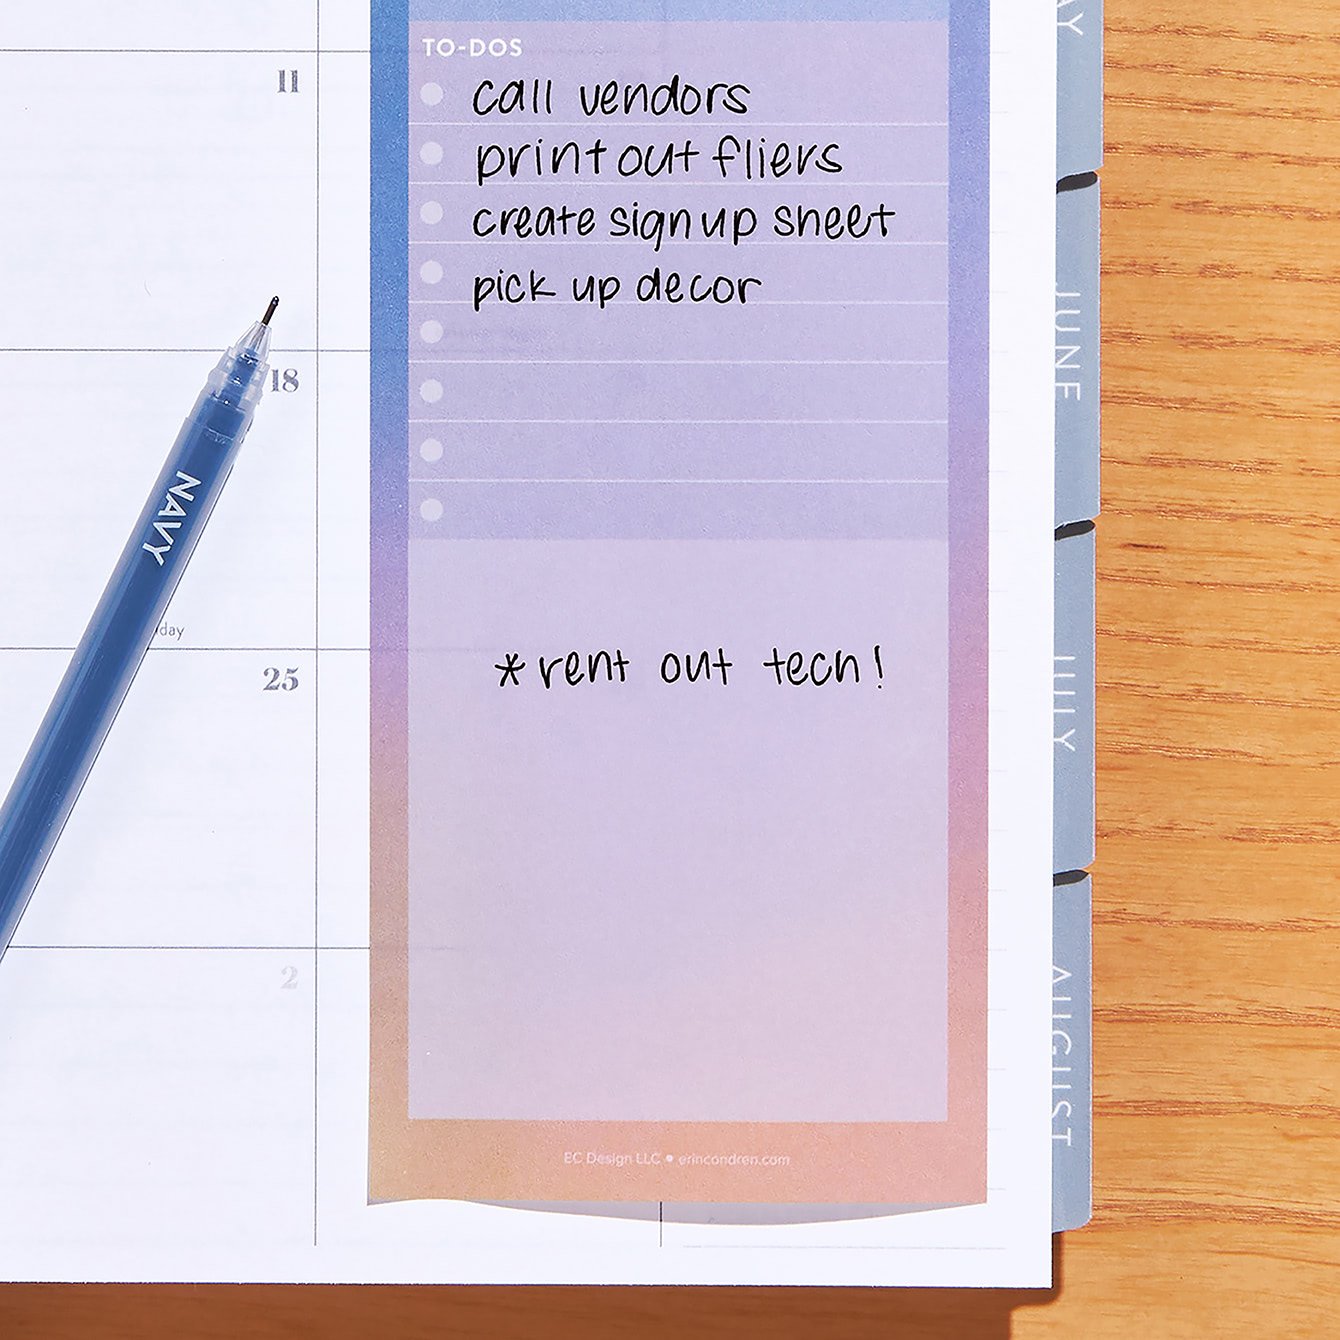 TO-DOS
call vendors
print out fliers
create sign up sheet
pick up decor
*rent out tech!
EC Design LLC • erincondren.com
11
18
25
2
NAVY
JUNE
JULY
AUGUST